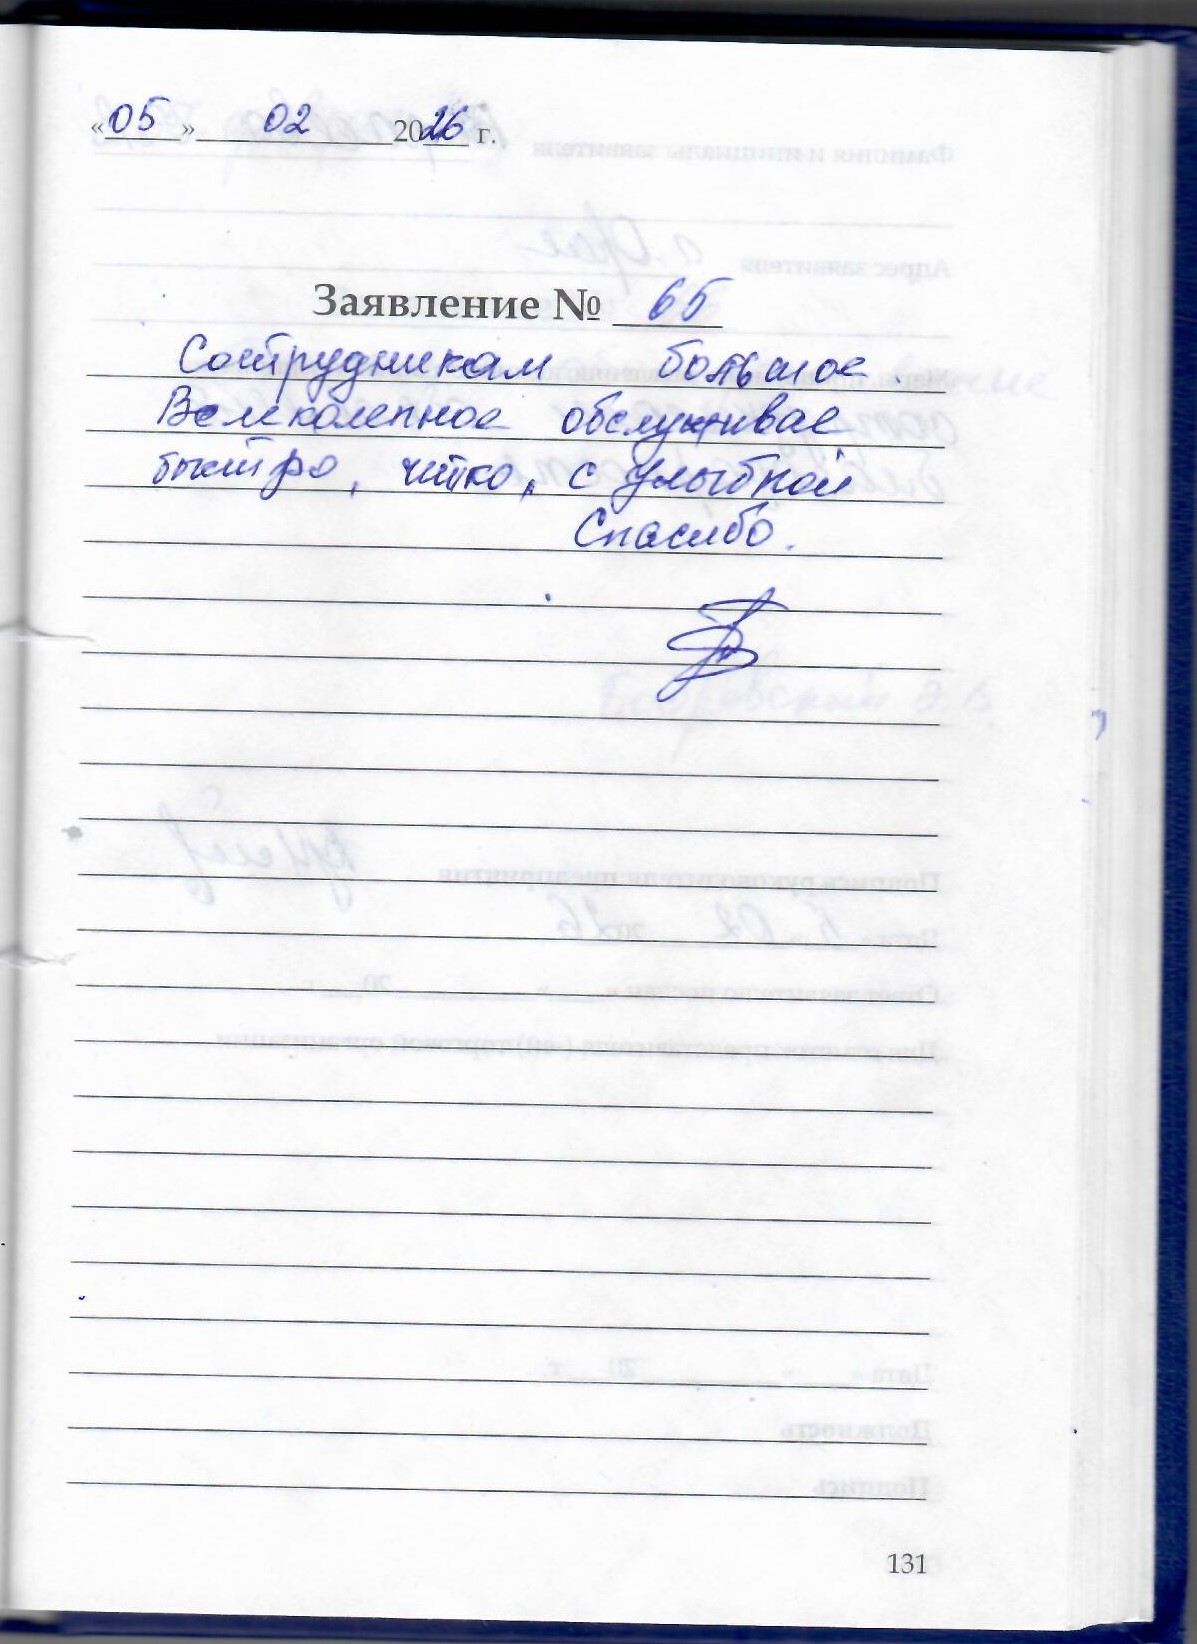 «05» 02 2026 г.
Заявление № 65
Сотрудникам большое
Великолепное обслуживае
быстро, чётко, с улыбкой
Спасибо.
131